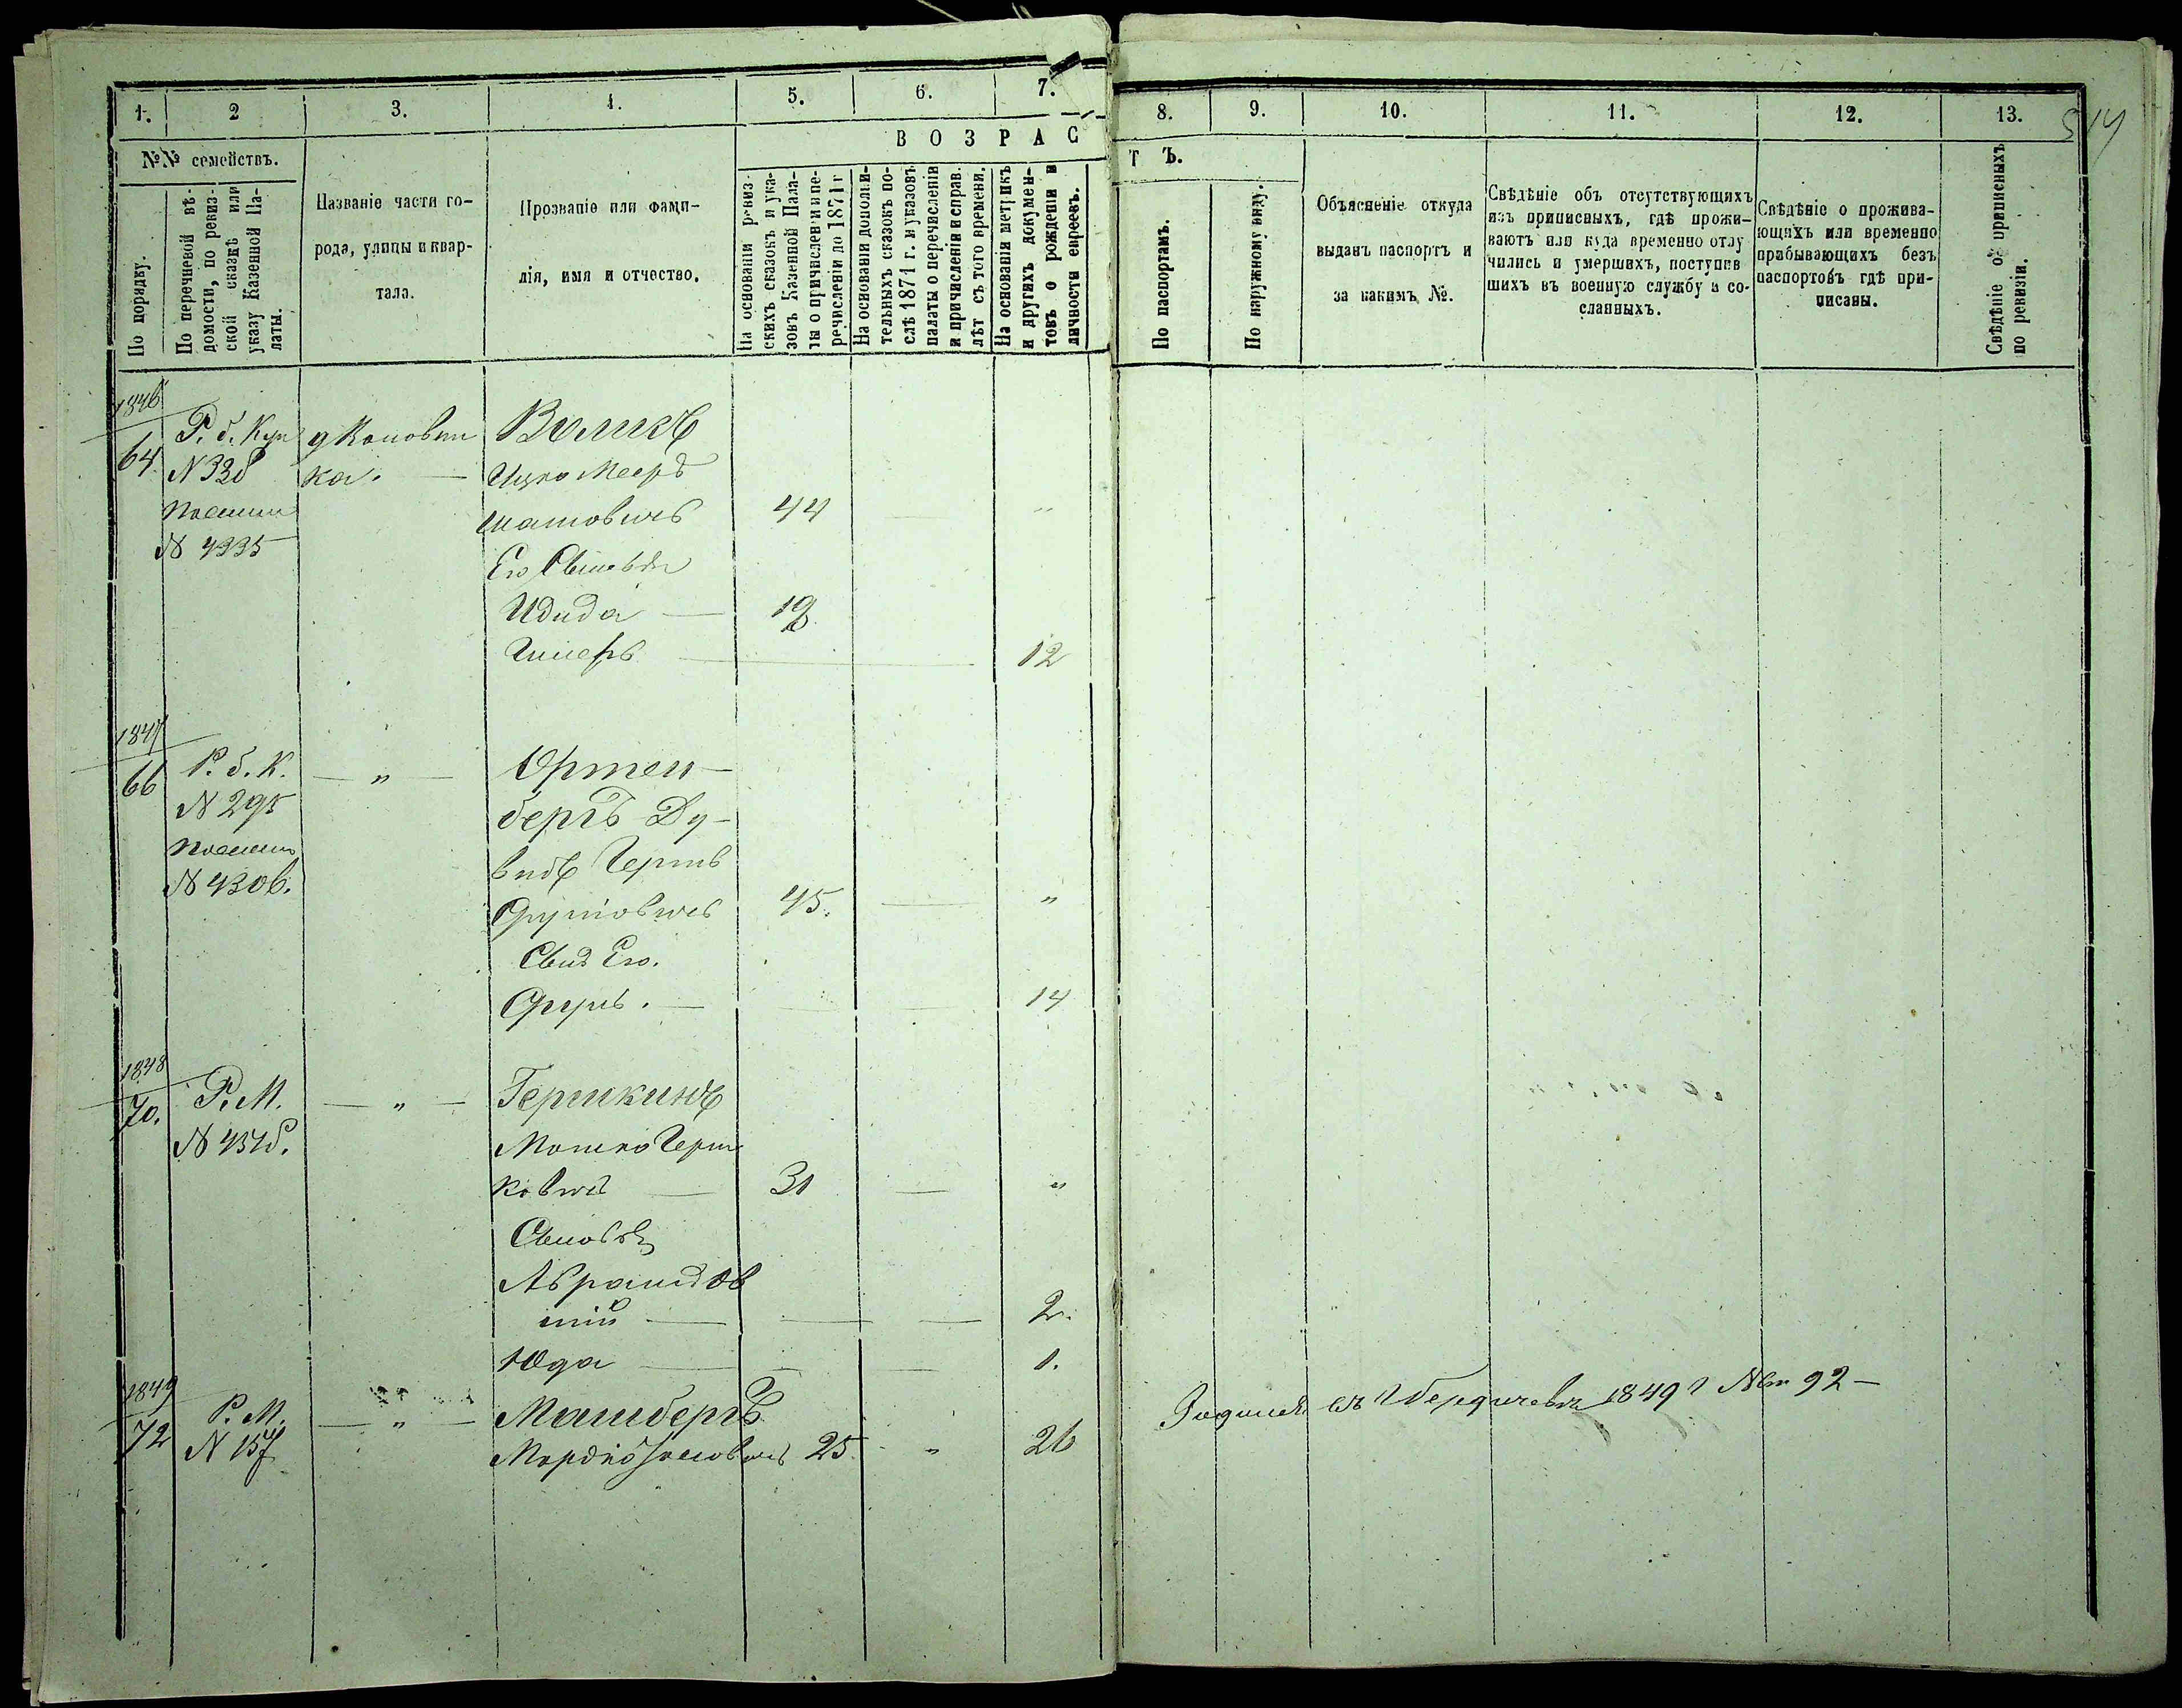 1. 2 3. 4. 5. 6. 7. 8. 9. 10. 11. 12. 13.
514
В О З Р А С Т Ъ.
№№ семействъ.
По порядку.
По перечневой вѣ-
домости, по ревиз-
ской сказкѣ или
указу Казенной Па-
латы.
Названіе части го-
рода, улицы и квар-
тала.
Прозваніе или фами-
лія, имя и отчество.
На основаніи ревиз-
скихъ сказокъ и ука-
зовъ Казенной Пала-
ты о причисленіи и пе-
речисленіи до 1871 г
На основаніи дополни-
тельныхъ сказокъ по-
слѣ 1871 г. и указовъ
палаты о перечисленіи
и причисленіи и справ.
лѣт съ того времени.
На основаніи метрикъ
и другихъ докумен-
товъ о рожденіи и
личности евреевъ.
По паспортамъ.
По наружному виду.
Объясненіе откуда
выданъ паспортъ и
за какимъ №.
Свѣдѣніе объ отсутствующихъ
изъ приписныхъ, гдѣ прожи-
ваютъ или куда временно отлу
чились и умершихъ, поступив
шихъ въ военную службу и со-
сланныхъ.
Свѣдѣніе о прожива-
ющихъ или временно
прибывающихъ безъ
паспортовъ гдѣ при-
писаны.
Свѣдѣніе объ приписныхъ
по ревизіи.
1846
64. Р. б. Куп
N 328
N 4335
Воликъ
Ицко Мееръ
44
Его Сыновья
19
12
1847
66 Р. б. К. — " — Ортен-
N 295
бергъ Ду-
видъ Гершъ
N 4306.
45. — "
Сынъ Его.
14
1848
70. Р. М. — " — Гершкинъ
Мошко Герш
ковичъ — 31 — "
Сыновья
2.
Юда — 1.
1849
72 Р. М. — " — Машбергъ
N 157 Мордко 25 " 26
Родился въ г Бердичевѣ 1849 г 92 —